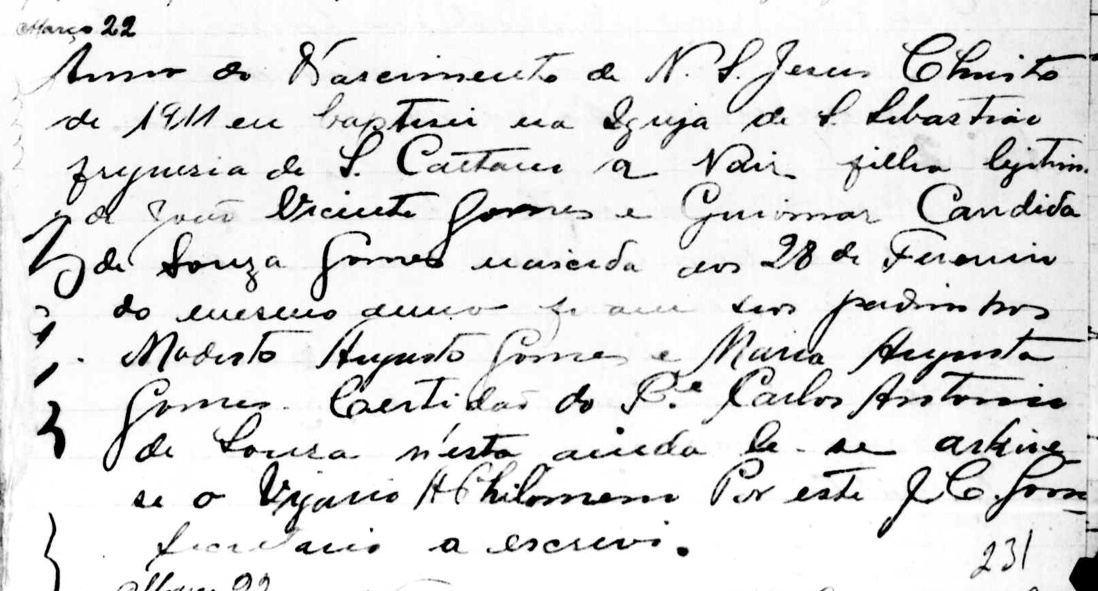 Março 22
Anno do Nascimento de N. S. Jesus Christo
de 1911 eu baptisei na Igreja de S. Sebastião
freguesia de S. Caetano a Nair filha legitim
de João Vicente Gomes e Guiomar Candida
de Souza Gomes nascida aos 28 de Fevereiro
do mesmo anno foram seos padrinhos
Modesto Augusto Gomes e Maria Augusta
Gomes. Certidão do P.e Carlos Antonio
de Souza n'esta ainda se
se o Vigario H Philomeno Por este J. C. Gom
Secretario a escrevi.
231
Março 22